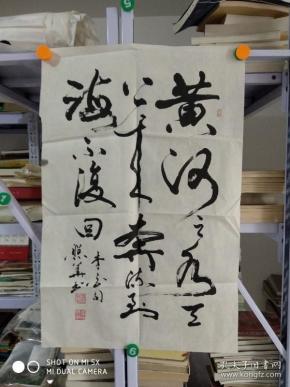 黄河之水天
上来奔流到
海不复回
李白句
SHOT ON MI 5X
MI DUAL CAMERA
孔夫子旧书网
www.kongfz.com
6